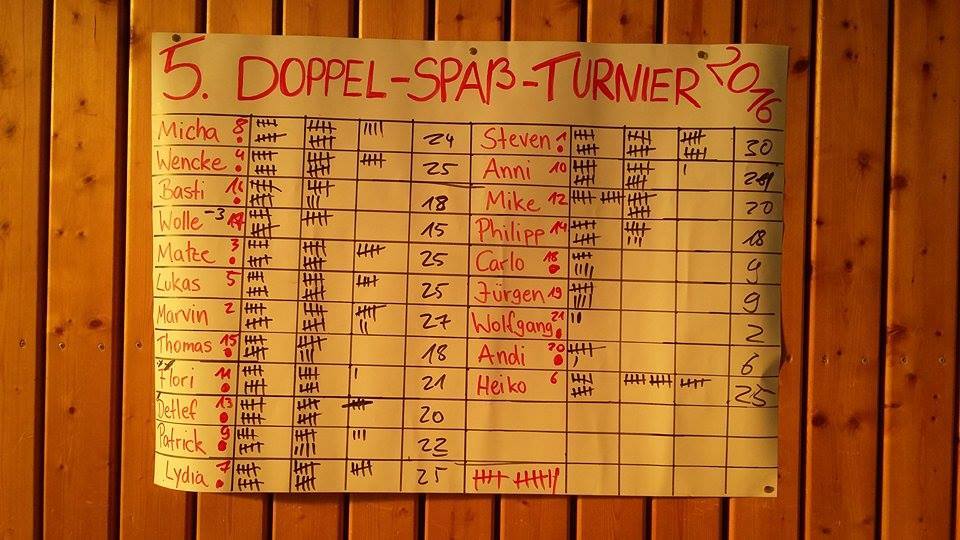 5. DOPPEL-SPAß-TURNIER 2016
Micha 8 24 Steven 1 30
Wencke 4 25 Anni 10
Basti 18 Mike 12 20
Wolle -3 15 Philipp 14 18
Matze 3 25 Carlo 18 9
Lukas 5 25 Jürgen 19 9
Marvin 2 27 Wolfgang 21 2
Thomas 15 18 Andi 20 6
Flori 11 21 Heiko 6 25
Detlef 13 20
Patrick 9 22
Lydia 7 25